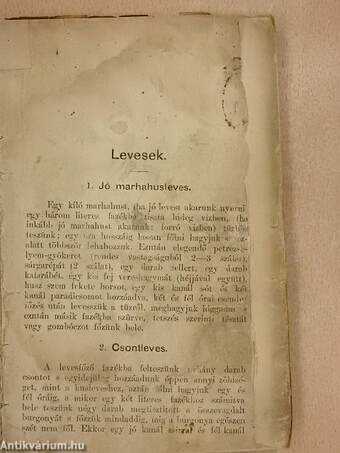 Levesek.
1. Jó marhahusleves.
Egy kiló marhahust, (ha jó levest akarunk nyerni
egy három literes fazékba tiszta hideg vizben, (ha
inkább jó marhahust akarunk: forró vizben) tűzhöz
teszünk; egy óra hosszáig lassan főlni hagyjuk s ez
alatt többször lehabozzuk. Ezután elegendő petrezse-
lyem-gyökeret (rendes vastagságuból 2—3 szálat),
sárgurépát (2 szálat), egy darab zellert, egy darab
kalarábét, egy kis fej vereshagymát (héjjával együtt),
husz szem fekete borsot, egy kis kanál sót és két
kanál paradicsomot hozzáadva, két és fél órai csendes
főzés után levesszük a tüzről, meghagyjuk higgadni s
ezután másik fazékba szűrve, tetszés szerinti tésztát
vagy gombóczot főzünk bele.
2. Csontleves.
A levesfőző fazékba felteszünk néhány darab
csontot s egyidejüleg hozzáadunk éppen annyi zöldsé-
get, mint a husleveshez, aztán főlni hagyjuk egy és
fél óráig, a mikor egy két literes fazékhoz számitva
bele teszünk négy darab megtisztitott s összevagdalt
burgonyát s főzzük mindaddig, mig a burgonya egészen
szét nem fől. Ekkor egy jó kanál zsirral és fél kanál
antikvarium.hu
Antikvárium.hu